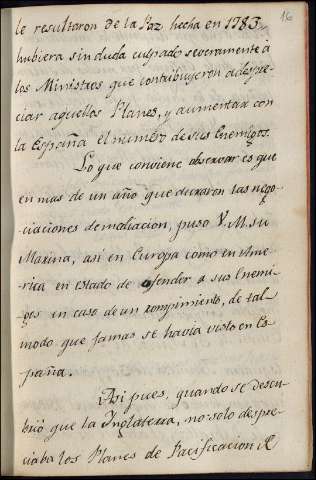 16
le resultaron de la Paz hecha en 1783.
hubiera sin duda culpado severamente à
los Ministros que contribuyeron a despre-
ciar aquellos Planes, y aumentar con
la España el numero de sus Enemigos.
Lo que conviene observar es que
en mas de un año que duraron las nego-
ciaciones de mediacion, puso V. M. su
Marina, asi en Europa como en Ame-
rica en estado de ofender a sus Enemi-
gos en caso de un rompimiento, de tal
modo que jamas se havia visto en Es-
paña.
Asi pues, quando se descu-
brió que la Inglaterra, no solo despre-
ciaba los Planes de Pacificacion